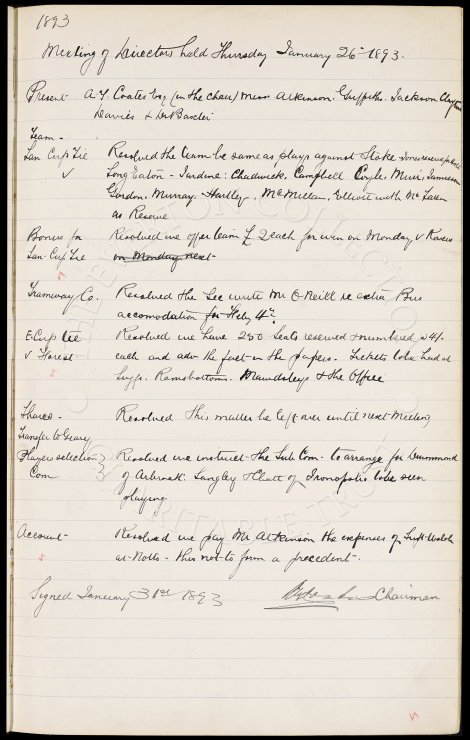 1893
Meeting of Directors held Thursday January 26th 1893.
Present A. T. Coates Esq (in the chair) Messrs Atkinson. Griffiths. Jackson Clayton
Davies & Dr Baxter
Team -
Lan Cup Tie Resolved the team be same as plays against Stoke Jones reserve
v Long Eaton - Jardine: Chadwick, Campbell Coyle. Muir, Jamieson
Gordon. Murray. Hartley, McMillan, Elliott with McLaren
as Reserve
Bonus for Resolved we offer team £2 each for win on Monday v Rovers
Lan. Cup Tie on Monday next
Tramway Co. Resolved the Sec write Mr O'Neill re extra Bus
accomodation for Feby 4th.
E. Cup tie Resolved we have 250 seats reserved & numbered, @ 4/-
v Forest each and adv the fact in the papers. Tickets to be had at
Ramsbottoms. Maundsleys & the Office
Shares - Resolved this matter be left over until next Meeting
Transfer to Geary
Players selection } Resolved we instruct the Sub Com - to arrange for Drummond
Com of Arbroath. Langley & of Ironopolis to be seen
playing
Account - Resolved we pay Mr Atkinson the expenses of Welsh
at Notts - this not to form a precedent -
Signed January 31st 1893 Chairman